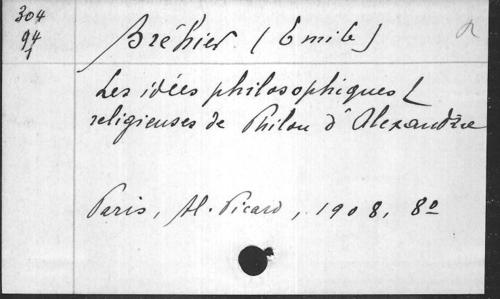 304
94
1
Bréhier (Emile)
Les idées philosophiques &
religieuses de Philon d'Alexandrie
Paris, Al. Picard, 1908, 8º